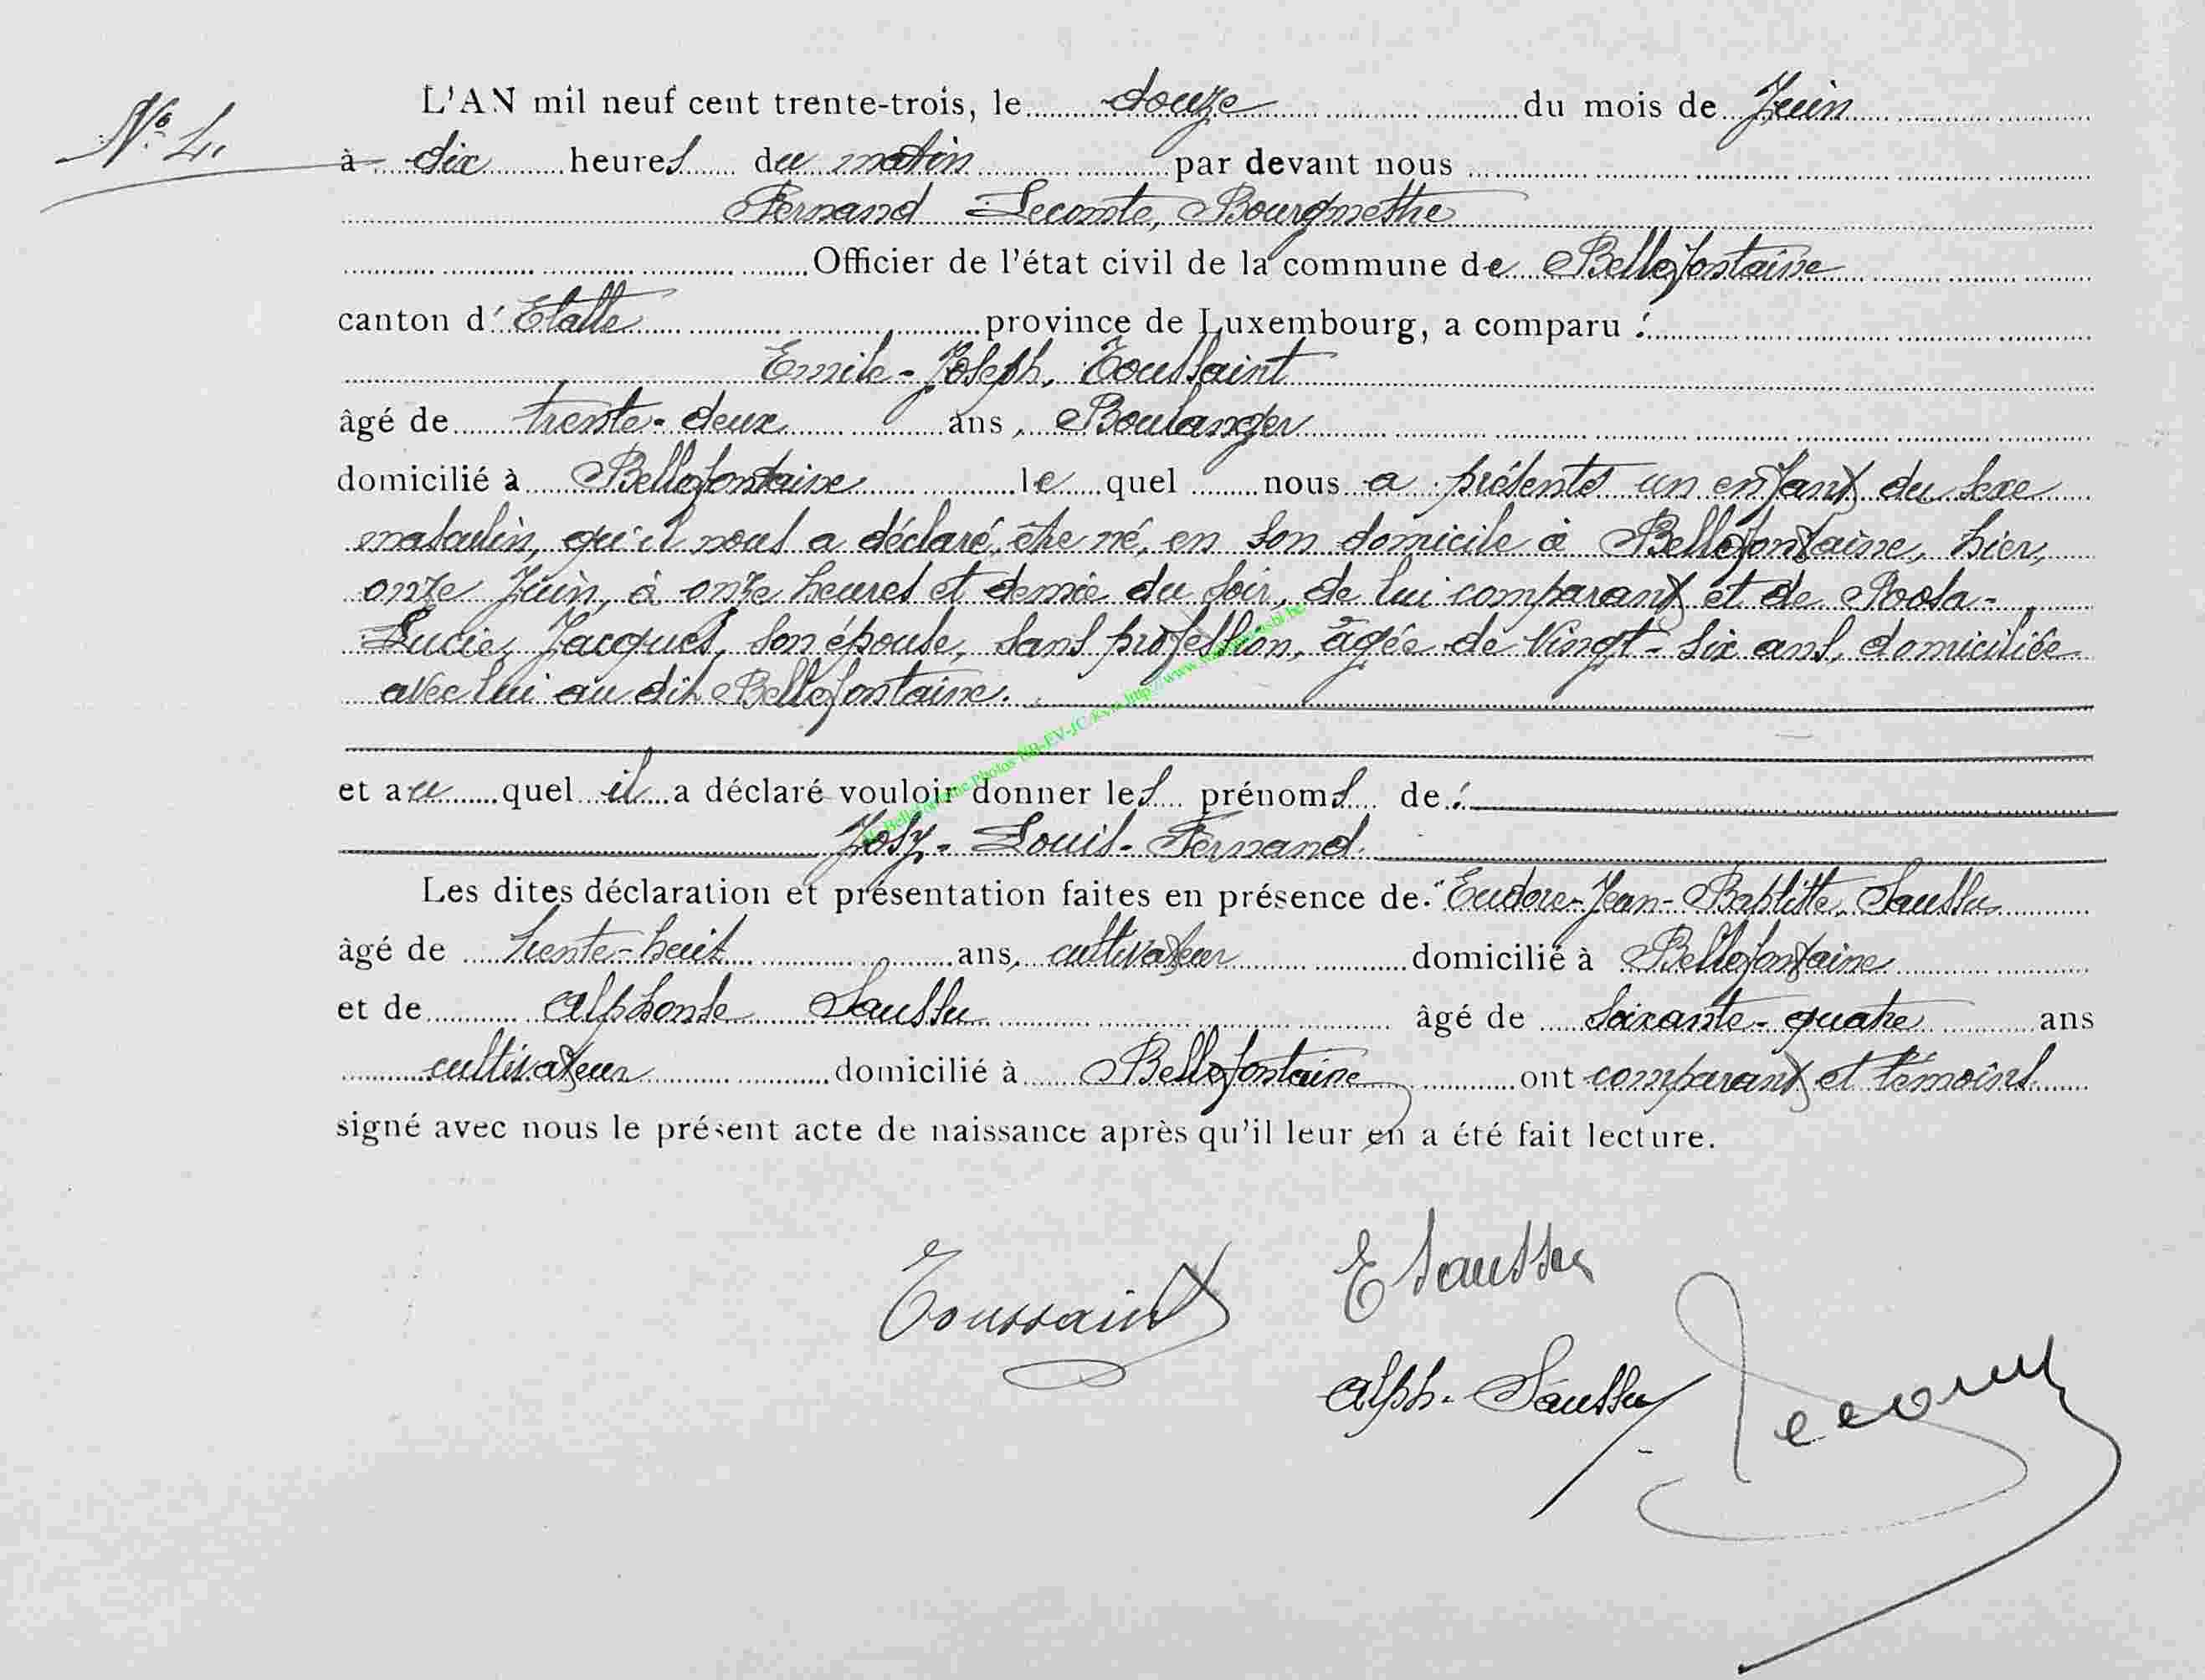 N° 4.
L'AN mil neuf cent trente-trois, le douze du mois de Juin
à dix heures du matin par devant nous
Fernand Lecomte, Bourgmestre
Officier de l'état civil de la commune de Bellefontaine
canton d'Etalle province de Luxembourg, a comparu :
Emile-Joseph, Toussaint
âgé de trente-deux ans, Boulanger
domicilié à Bellefontaine le quel nous a présenté un enfant du sexe
masculin, qu'il nous a déclaré, être né, en son domicile à Bellefontaine, hier,
onze Juin, à onze heures et demie du soir, de lui comparant et de Rosa-
Lucie, Jacques, son épouse, sans profession, âgée de vingt-six ans, domiciliée
avec lui au dit Bellefontaine.
et au quel il a déclaré vouloir donner les prénoms de :
Josy-Louis-Fernand.
Les dites déclaration et présentation faites en présence de Eudore-Jean-Baptiste, Saussu
âgé de trente-huit ans, cultivateur domicilié à Bellefontaine
et de Alphonse Saussu âgé de soixante-quatre ans
cultivateur domicilié à Bellefontaine ont comparant et témoins
signé avec nous le présent acte de naissance après qu'il leur en a été fait lecture.
Toussaint
E Saussu
Alph. Saussu